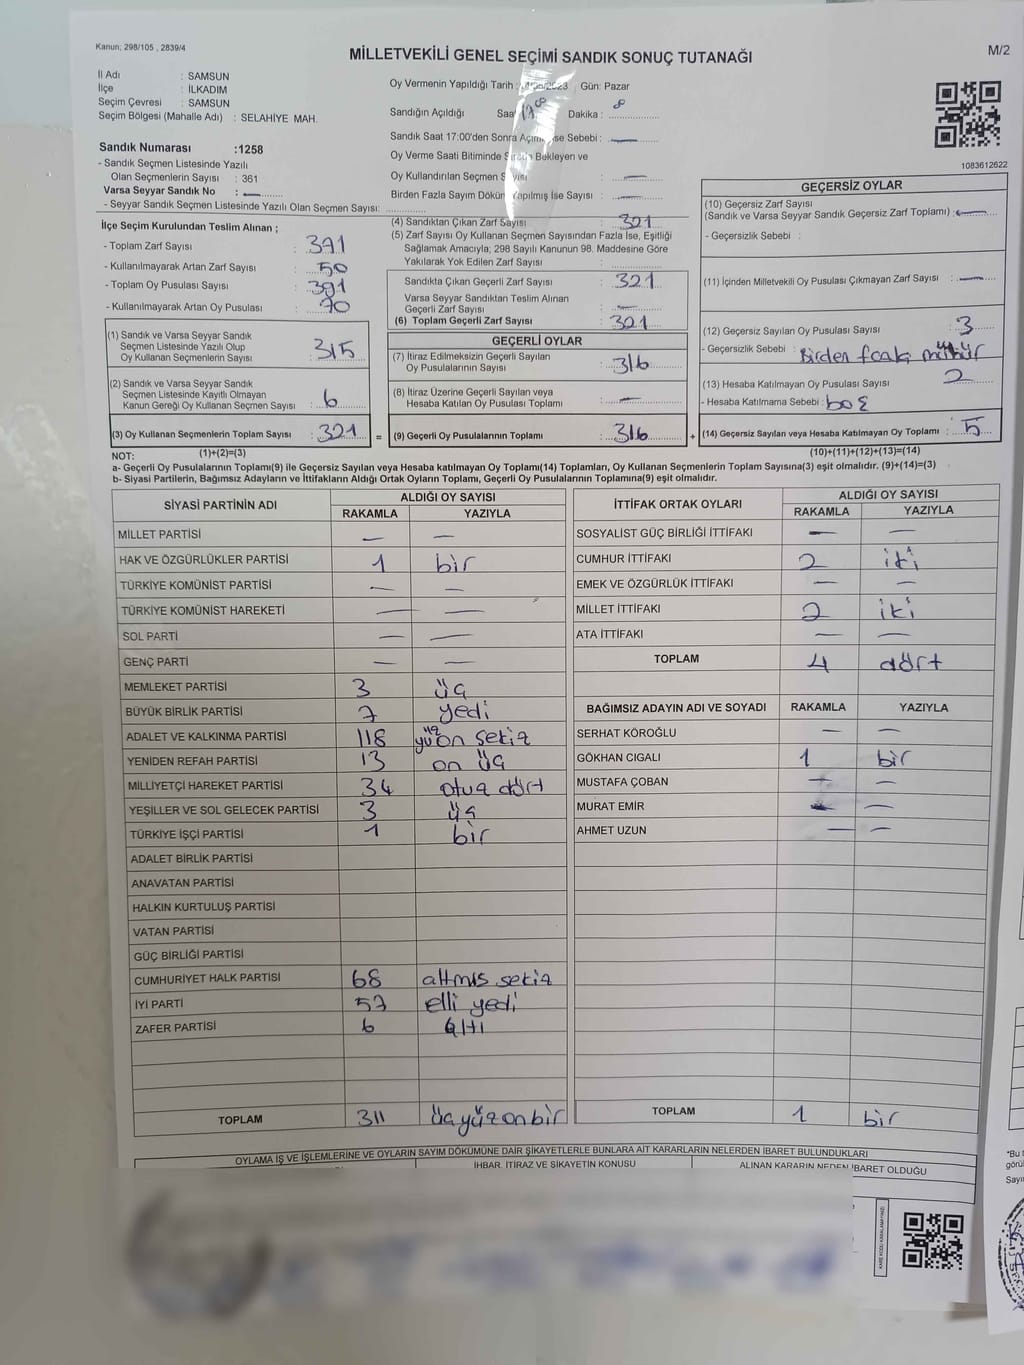 Kanun; 298/105 , 2839/4
MİLLETVEKİLİ GENEL SEÇİMİ SANDIK SONUÇ TUTANAĞI
M/2
İl Adı : SAMSUN
İlçe : İLKADIM
Seçim Çevresi : SAMSUN
Seçim Bölgesi (Mahalle Adı) : SELAHİYE MAH.
Sandık Numarası :1258
- Sandık Seçmen Listesinde Yazılı
Olan Seçmenlerin Sayısı : 361
Varsa Seyyar Sandık No : —
- Seyyar Sandık Seçmen Listesinde Yazılı Olan Seçmen Sayısı:
Oy Vermenin Yapıldığı Tarih : Gün: Pazar
Sandığın Açıldığı Dakika :
Sandık Saat 17:00'den Sonra Sebebi : —
Oy Verme Saati Bitiminde Bekleyen ve
Oy Kullandırılan Seçmen : —
Birden Fazla Sayım Döküm Yapılmış İse Sayısı : —
1083612622
İlçe Seçim Kurulundan Teslim Alınan ;
- Toplam Zarf Sayısı : 371
- Kullanılmayarak Artan Zarf Sayısı : 50
- Toplam Oy Pusulası Sayısı : 391
- Kullanılmayarak Artan Oy Pusulası : 70
(1) Sandık ve Varsa Seyyar Sandık
Seçmen Listesinde Yazılı Olup
Oy Kullanan Seçmenlerin Sayısı : 315
(2) Sandık ve Varsa Seyyar Sandık
Seçmen Listesinde Kayıtlı Olmayan
Kanun Gereği Oy Kullanan Seçmen Sayısı : 6
(3) Oy Kullanan Seçmenlerin Toplam Sayısı : 321
(4) Sandıktan Çıkan Zarf Sayısı : 321
(5) Zarf Sayısı Oy Kullanan Seçmen Sayısından Fazla İse, Eşitliği
Sağlamak Amacıyla; 298 Sayılı Kanunun 98. Maddesine Göre
Yakılarak Yok Edilen Zarf Sayısı :
Sandıkta Çıkan Geçerli Zarf Sayısı : 321
Varsa Seyyar Sandıktan Teslim Alınan
Geçerli Zarf Sayısı : —
(6) Toplam Geçerli Zarf Sayısı : 321
GEÇERLİ OYLAR
(7) İtiraz Edilmeksizin Geçerli Sayılan
Oy Pusulalarının Sayısı : 316
(8) İtiraz Üzerine Geçerli Sayılan veya
Hesaba Katılan Oy Pusulası Toplamı : —
= (9) Geçerli Oy Pusulalarının Toplamı : 316
GEÇERSİZ OYLAR
(10) Geçersiz Zarf Sayısı
(Sandık ve Varsa Seyyar Sandık Geçersiz Zarf Toplamı) : —
- Geçersizlik Sebebi :
(11) İçinden Milletvekili Oy Pusulası Çıkmayan Zarf Sayısı : —
(12) Geçersiz Sayılan Oy Pusulası Sayısı : 3
- Geçersizlik Sebebi : Birden mühür
(13) Hesaba Katılmayan Oy Pusulası Sayısı : 2
- Hesaba Katılmama Sebebi : boş
+ (14) Geçersiz Sayılan veya Hesaba Katılmayan Oy Toplamı : 5
NOT: (1)+(2)=(3)
(10)+(11)+(12)+(13)=(14)
a- Geçerli Oy Pusulalarının Toplamı(9) ile Geçersiz Sayılan veya Hesaba katılmayan Oy Toplamı(14) Toplamları, Oy Kullanan Seçmenlerin Toplam Sayısına(3) eşit olmalıdır. (9)+(14)=(3)
b- Siyasi Partilerin, Bağımsız Adayların ve İttifakların Aldığı Ortak Oyların Toplamı, Geçerli Oy Pusulalarının Toplamına(9) eşit olmalıdır.
SİYASİ PARTİNİN ADI ALDIĞI OY SAYISI
RAKAMLA YAZIYLA
MİLLET PARTİSİ — —
HAK VE ÖZGÜRLÜKLER PARTİSİ 1 bir
TÜRKİYE KOMÜNİST PARTİSİ — —
TÜRKİYE KOMÜNİST HAREKETİ — —
SOL PARTİ — —
GENÇ PARTİ — —
MEMLEKET PARTİSİ 3 üç
BÜYÜK BİRLİK PARTİSİ 7 yedi
ADALET VE KALKINMA PARTİSİ 118 yüz on sekiz
YENİDEN REFAH PARTİSİ 13 on üç
MİLLİYETÇİ HAREKET PARTİSİ 34 otuz dört
YEŞİLLER VE SOL GELECEK PARTİSİ 3 üç
TÜRKİYE İŞÇİ PARTİSİ 1 bir
ADALET BİRLİK PARTİSİ
ANAVATAN PARTİSİ
HALKIN KURTULUŞ PARTİSİ
VATAN PARTİSİ
GÜÇ BİRLİĞİ PARTİSİ
CUMHURİYET HALK PARTİSİ 68 altmış sekiz
İYİ PARTİ 57 elli yedi
ZAFER PARTİSİ 6 altı
TOPLAM 311 üçyüzonbir
İTTİFAK ORTAK OYLARI ALDIĞI OY SAYISI
RAKAMLA YAZIYLA
SOSYALİST GÜÇ BİRLİĞİ İTTİFAKI — —
CUMHUR İTTİFAKI 2 iki
EMEK VE ÖZGÜRLÜK İTTİFAKI — —
MİLLET İTTİFAKI 2 iki
ATA İTTİFAKI — —
TOPLAM 4 dört
BAĞIMSIZ ADAYIN ADI VE SOYADI RAKAMLA YAZIYLA
SERHAT KÖROĞLU — —
GÖKHAN CIGALI 1 bir
MUSTAFA ÇOBAN — —
MURAT EMİR — —
AHMET UZUN — —
TOPLAM 1 bir
OYLAMA İŞ VE İŞLEMLERİNE VE OYLARIN SAYIM DÖKÜMÜNE DAİR ŞİKAYETLERLE BUNLARA AİT KARARLARIN NELERDEN İBARET BULUNDUKLARI
İHBAR, İTİRAZ VE ŞİKAYETİN KONUSU ALINAN KARARIN NEDEN İBARET OLDUĞU